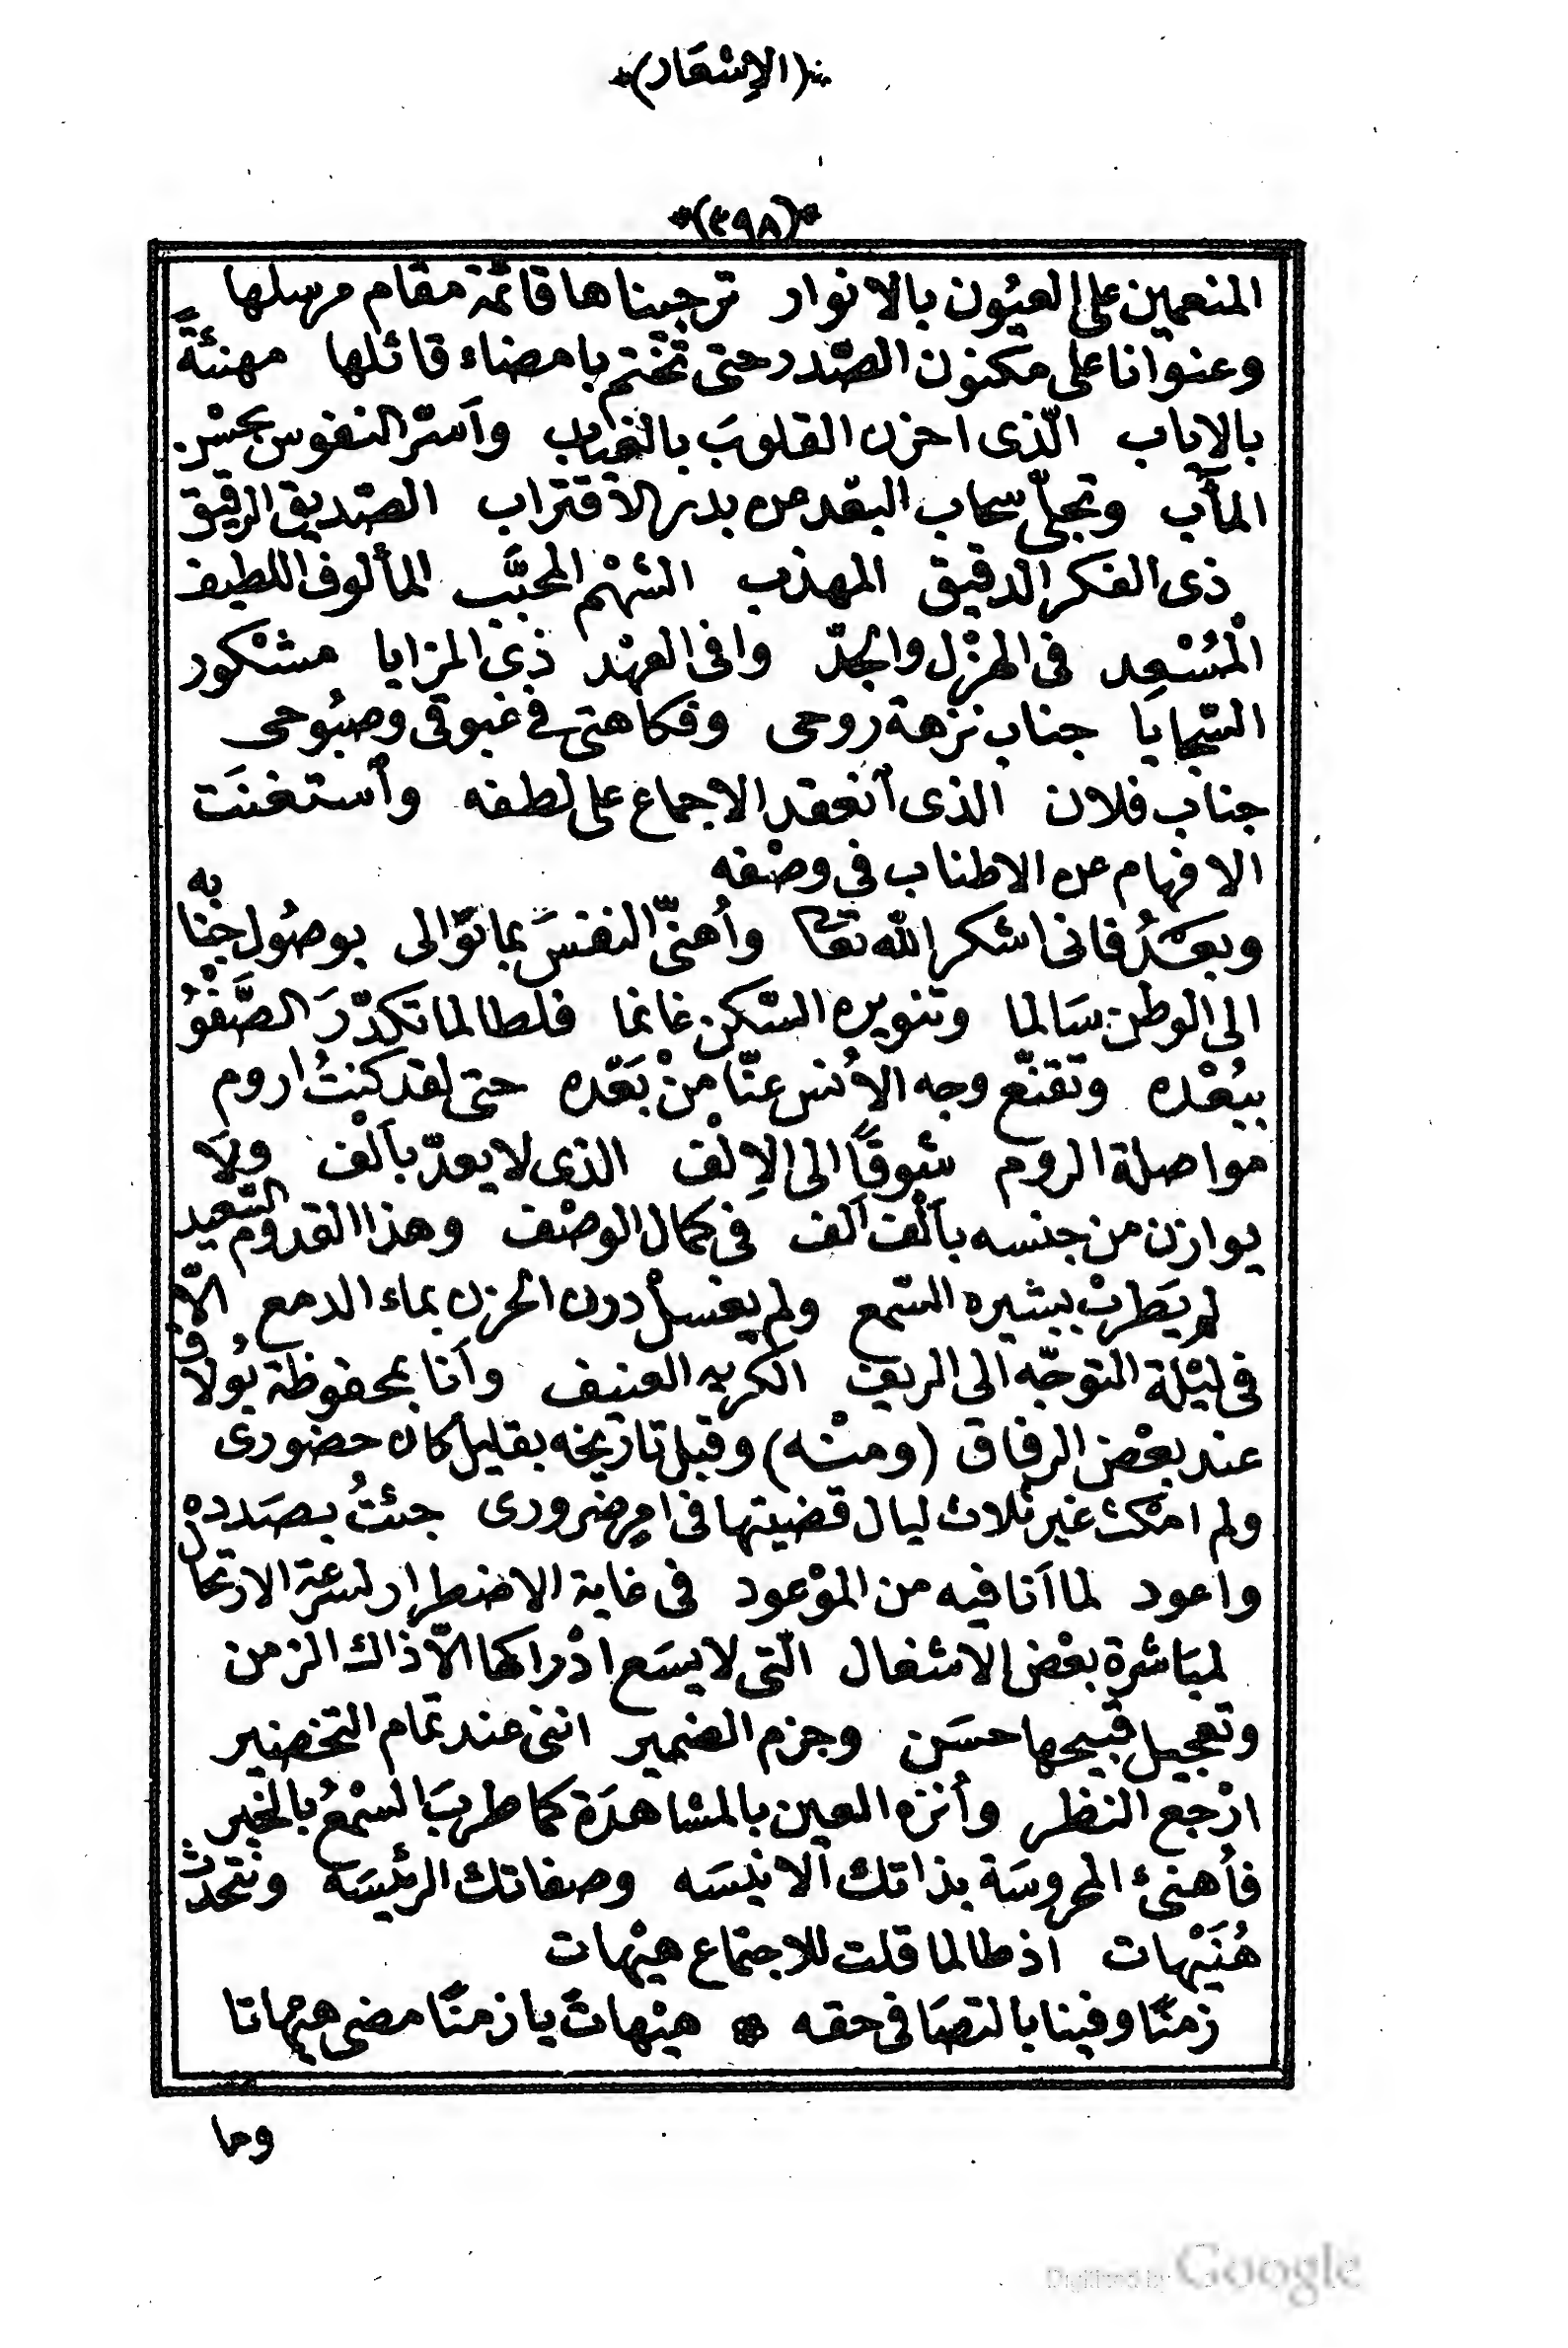 *(الإسْعَاد)*
*(٣٩٨)*
المنعمين على العيُون بالانوار ترجيناها قائمة مقام مرسلها
وعنوانا على مكنون الصّدر حتى تختم بامضاء قائلها مهنئةً
بالاياب الّذى احزن القلوبَ بالغياب وأسرّ النفوس بحسْن
المآب وتجلّى سحاب البعد عن بدر الاقتراب الصّديق الرقيق
ذى الفكر الدقيق المهذب الشهْم المحبَّب المألوف اللطيف
الْمُسْعِد فى الهزْل والجدّ وافى العهْد ذى المزايا مشكور
السّجايا جناب نزهة روحى وفكاهتى فى غبوقى وصبُوحى
جناب فلان الذى أنعقد الاجماع على لطفه وأستغنَت
الافهام عن الاطناب فى وصْفه
وبعْدُ فانى اشكر الله تعالى وأُهنّى النفسَ بما توّالى بوصُول جنابه
الى الوطن سَالما وتنويره السّكن غانما فلطالما تكدّرَ الصَّفْوُ
ببُعْده وتقنّع وجه الأُنس عنّا منْ بَعْده حتى لقد كنتُ اروم
مواصلة الروم شوقًا الى الإلْف الذى لا يعدّ بألْف ولَا
يوازن من جنسه بألْف ألف فى كمال الوصْف وهذا القدوم السّعيد
لم يَطرَبْ ببشيره السّمع ولم يغسلْ درن الحزن بماء الدمع الّا
فى ليْلة التوجّه الى الريف الكريه العنيف وأنا بمحفوظة بُولاق
عند بعْض الرفاق (ومنْه) وقبل تاريخه بقليل كان حضورى
ولم امكث غير ثلاث ليال قضيتها فى امر ضرورى جئتُ بصَدده
واعود لما أنا فيه من الموْعود فى غاية الاضطرار لسرعة الارتحال
لمبَاشرة بعْض الاشغال الّتى لا يسَع ادْراكها الّا ذاك الزمن
وتعجيل قبيحها حسَن وجزم الضمير اننى عند تمام التخضير
ارْجع النظر وأنزه العين بالمشاهدَة كما طربَ السْمعُ بالخبر
فأهنئ المحروسَة بذاتك الانيسَه وصفاتك الرئيسَه ونتحدّث
هُنَيْهات اذ طالما قلت للاجتماع هيْهات
زمنًا وفينا بالتصَافى حقه * هيْهاتَ يا زمنًا مضى هيْهاتا
وما
Digitized by Google